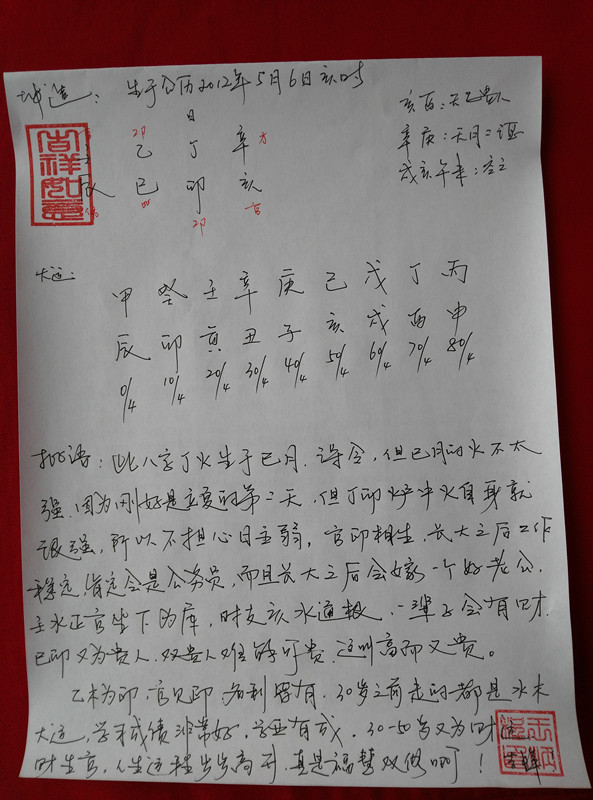 坤造：生于公历2012年5月6日亥时
亥酉：天乙贵人
日
卩 乙 丁 辛 才
辛庚：天月二德
辰 巳 卯 亥
戌亥午未：空亡
卩 官
大运：
甲 癸 壬 辛 庚 己 戊 丁 丙
辰 卯 寅 丑 子 亥 戌 酉 申
0/4 10/4 20/4 30/4 40/4 50/4 60/4 70/4 80/4
批语：此八字丁火生于巳月，得令，但巳月的火不太
强，因为刚好是立夏的第二天，但丁卯炉中火自身就
很强，所以不担心日主弱，官印相生，长大之后工作
稳定，肯定会是公务员，而且长大之后会嫁一个好老公，
壬水正官坐下为库，时支亥水通根，一辈子会有口才，
巳卯又为贵人，双贵人难能可贵，这叫高而又贵。
乙木为印，官见印，名利皆有，30岁之前走的都是水木
大运，学习成绩非常好，学业有成，30-50岁又为财运
财生官，人生运程步步高升，真是福慧双修啊！
吉祥如意